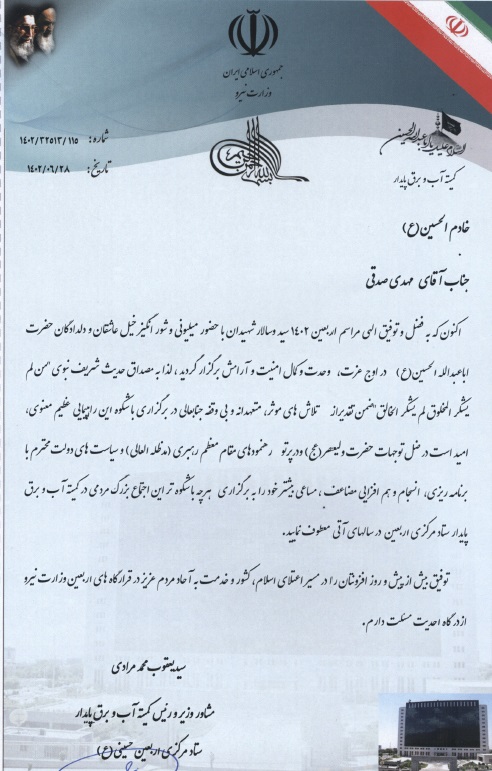 جمهوری اسلامی ایران
وزارت نیرو
شماره: ۱۴۰۲/۳۲۵۱۳/۱۱۵
تاریخ: ۱۴۰۲/۰۶/۲۸
بسم الله الرحمن الرحیم
السلام علیک یا اباعبدالله الحسین
کمیته آب و برق پایدار
خادم الحسین (ع)
جناب آقای مهدی صدقی
اکنون که به فضل و توفیق الهی مراسم اربعین ۱۴۰۲ سید و سالار شهیدان با حضور میلیونی و شور انگیز خیل عاشقان و دلدادگان حضرت
اباعبدالله الحسین (ع) در اوج عزت، وحدت و کمال امنیت و آرامش برگزار گردید، لذا به مصداق حدیث شریف نبوی "من لم
یشکر المخلوق لم یشکر الخالق" ضمن تقدیر از تلاش های موثر، متعهدانه و بی وقفه جنابعالی در برگزاری باشکوه این راهپیمایی عظیم معنوی،
امید است در ضل توجهات حضرت ولیعصر (عج) و در پرتو رهنمودهای مقام معظم رهبری (مدظله العالی) و سیاست های دولت محترم با
برنامه ریزی، انسجام و هم افزایی مضاعف، مساعی بیشتر خود را به برگزاری هرچه باشکوه تر این اجتماع بزرگ مردمی در کمیته آب و برق
پایدار ستاد مرکزی اربعین در سالهای آتی معطوف نمایید.
توفیق بیش از پیش و روز افزونتان را در مسیر اعتلای اسلام، کشور و خدمت به آحاد مردم عزیز در قرارگاه های اربعین وزارت نیرو
از درگاه احدیت مسئلت دارم.
سید یعقوب محمد مرادی
مشاور وزیر و رئیس کمیته آب و برق پایدار
ستاد مرکزی اربعین حسینی (ع)